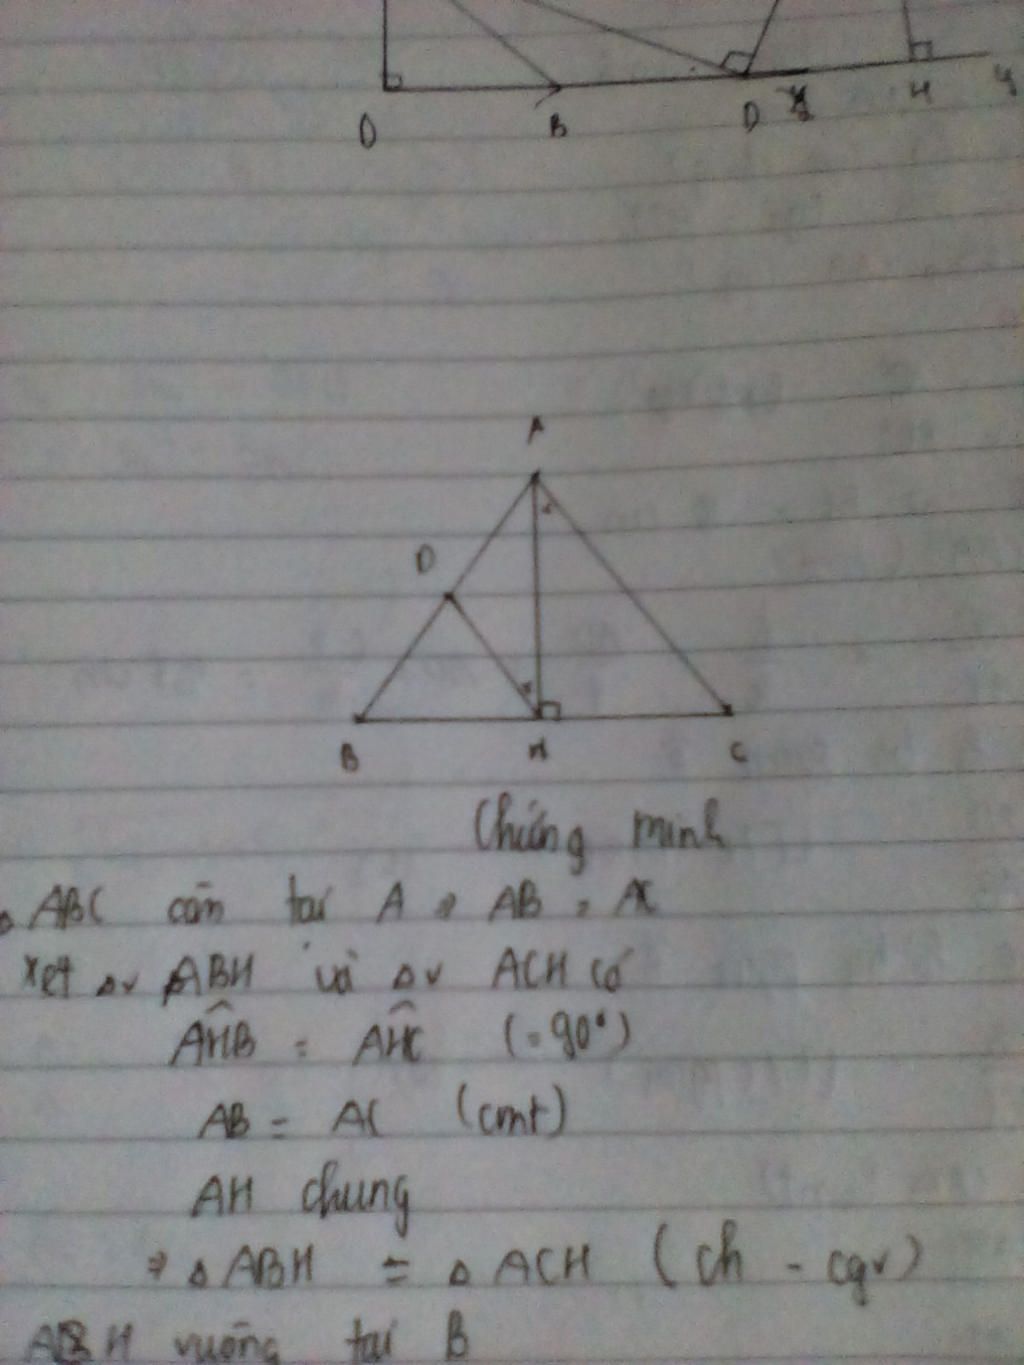 O B D y H y
A
D
B H C
Chứng minh
Δ ABC cân tại A ⇒ AB = AC
Xét Δv ABH và Δv ACH có
AHB = AHC (= 90°)
AB = AC (cmt)
AH chung
⇒ Δ ABH = Δ ACH (ch - cgv)
ABH vuông tại B